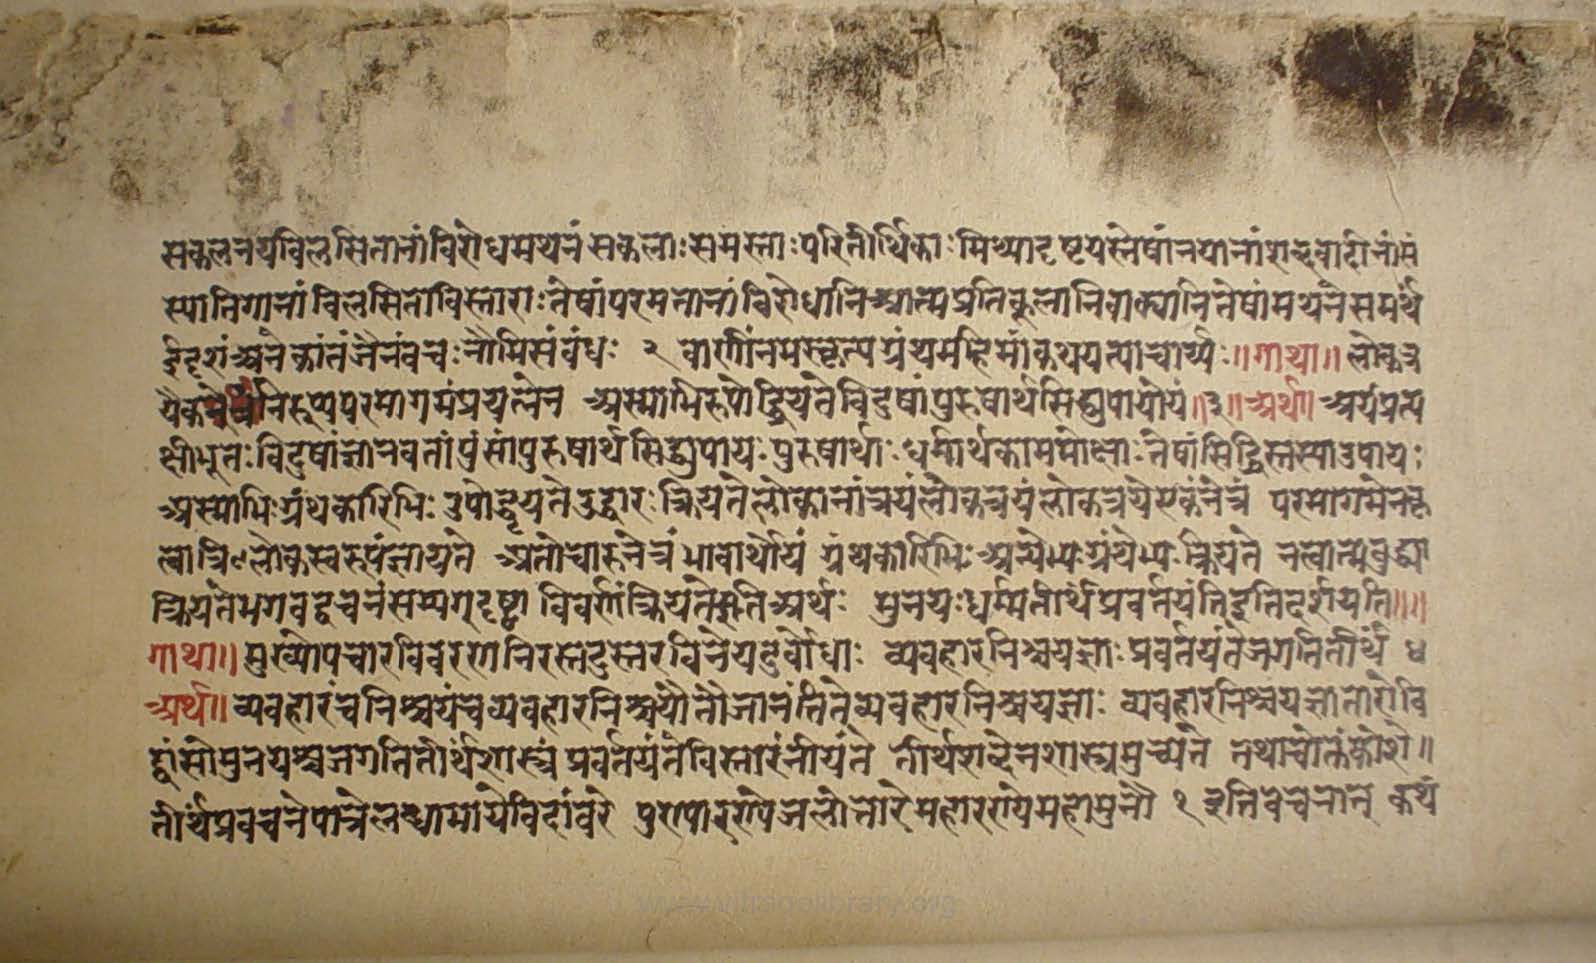 सकलनयविलसितानांविरोधमथनं सकलाः समस्ताः परितीर्थिकाः मिथ्यादृष्टयस्तेषांनयानांशब्दवादीनांसं
स्यानिगानांविलसितोविस्ताराः तेषांपरमतानांविरोधानिआत्मप्रतिकूलानिवाक्यानितेषांमथनेसमर्थं
ईदृशंअनेकांतंजैनंवचः नौमिसंबंधः २ वाणींनमस्कृत्य ग्रंथमहिमांकथयत्याचार्य्यः ॥गाथा॥ लोकत्र
यैकनेत्रंनिरूप्यपरमागमंप्रयत्नेन अस्माभिरुपोद्ध्रियतेविदुषांपुरुषार्थसिद्ध्युपायोयं॥३॥अर्थ॥ अयंप्रत्य
क्षीभूतः विदुषांज्ञानवतांपुंसांपुरुषार्थसिद्ध्युपायः पुरुषार्थाः धर्मार्थकाममोक्षाः तेषांसिद्धिस्तस्याउपायः
अस्माभिः ग्रंथकारिभिः उपोद्ध्रियते उद्धारः क्रियतेलोकानांत्रयंलोकत्रयंलोकत्रयेएकंनेत्रं परमागमेनकृ
त्वात्रिणलोकस्वरूपंज्ञायते अतोचारुनेत्रं भावार्थोयं ग्रंथकारिभिः अन्येभ्यः ग्रंथेभ्यः क्रियते नत्वात्मबुद्ध्या
क्रियतेभगवद्वचनंसम्यग्दृष्ट्वा विवर्णांक्रियतेइतिअर्थः मुनयः धर्म्मतीर्थंप्रवर्तयंतिइतिदर्शयति॥॥
गाथा॥ मुख्योपचारविवरणनिरस्तदुस्तरविनेयदुर्बोधाः व्यवहारनिश्चयज्ञाः प्रवर्तयंतेजगतितीर्थं ४
अर्थ॥ व्यवहारंचनिश्चयंचव्यवहारनिश्चयौतौजानंतितेव्यवहारनिश्चयज्ञाः व्यवहारनिश्चयज्ञातारोवि
द्वांसोमुनयश्चजगतितीर्थंशास्त्रं प्रवर्तयंतेविस्तारंनीयंते तीर्थशब्देनशास्त्रमुच्यते तथाचोक्तंकोशे॥
तीर्थंप्रवचनेपात्रेलब्धाम्नायेविदांवरे पुण्यारण्येजलोत्तारेमहारण्येमहामुनौ १ इतिवचनात् कथं